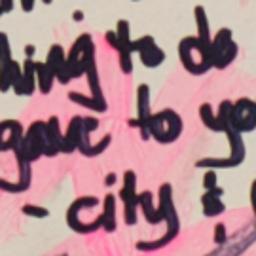 hing to do
gave to yo
- city i